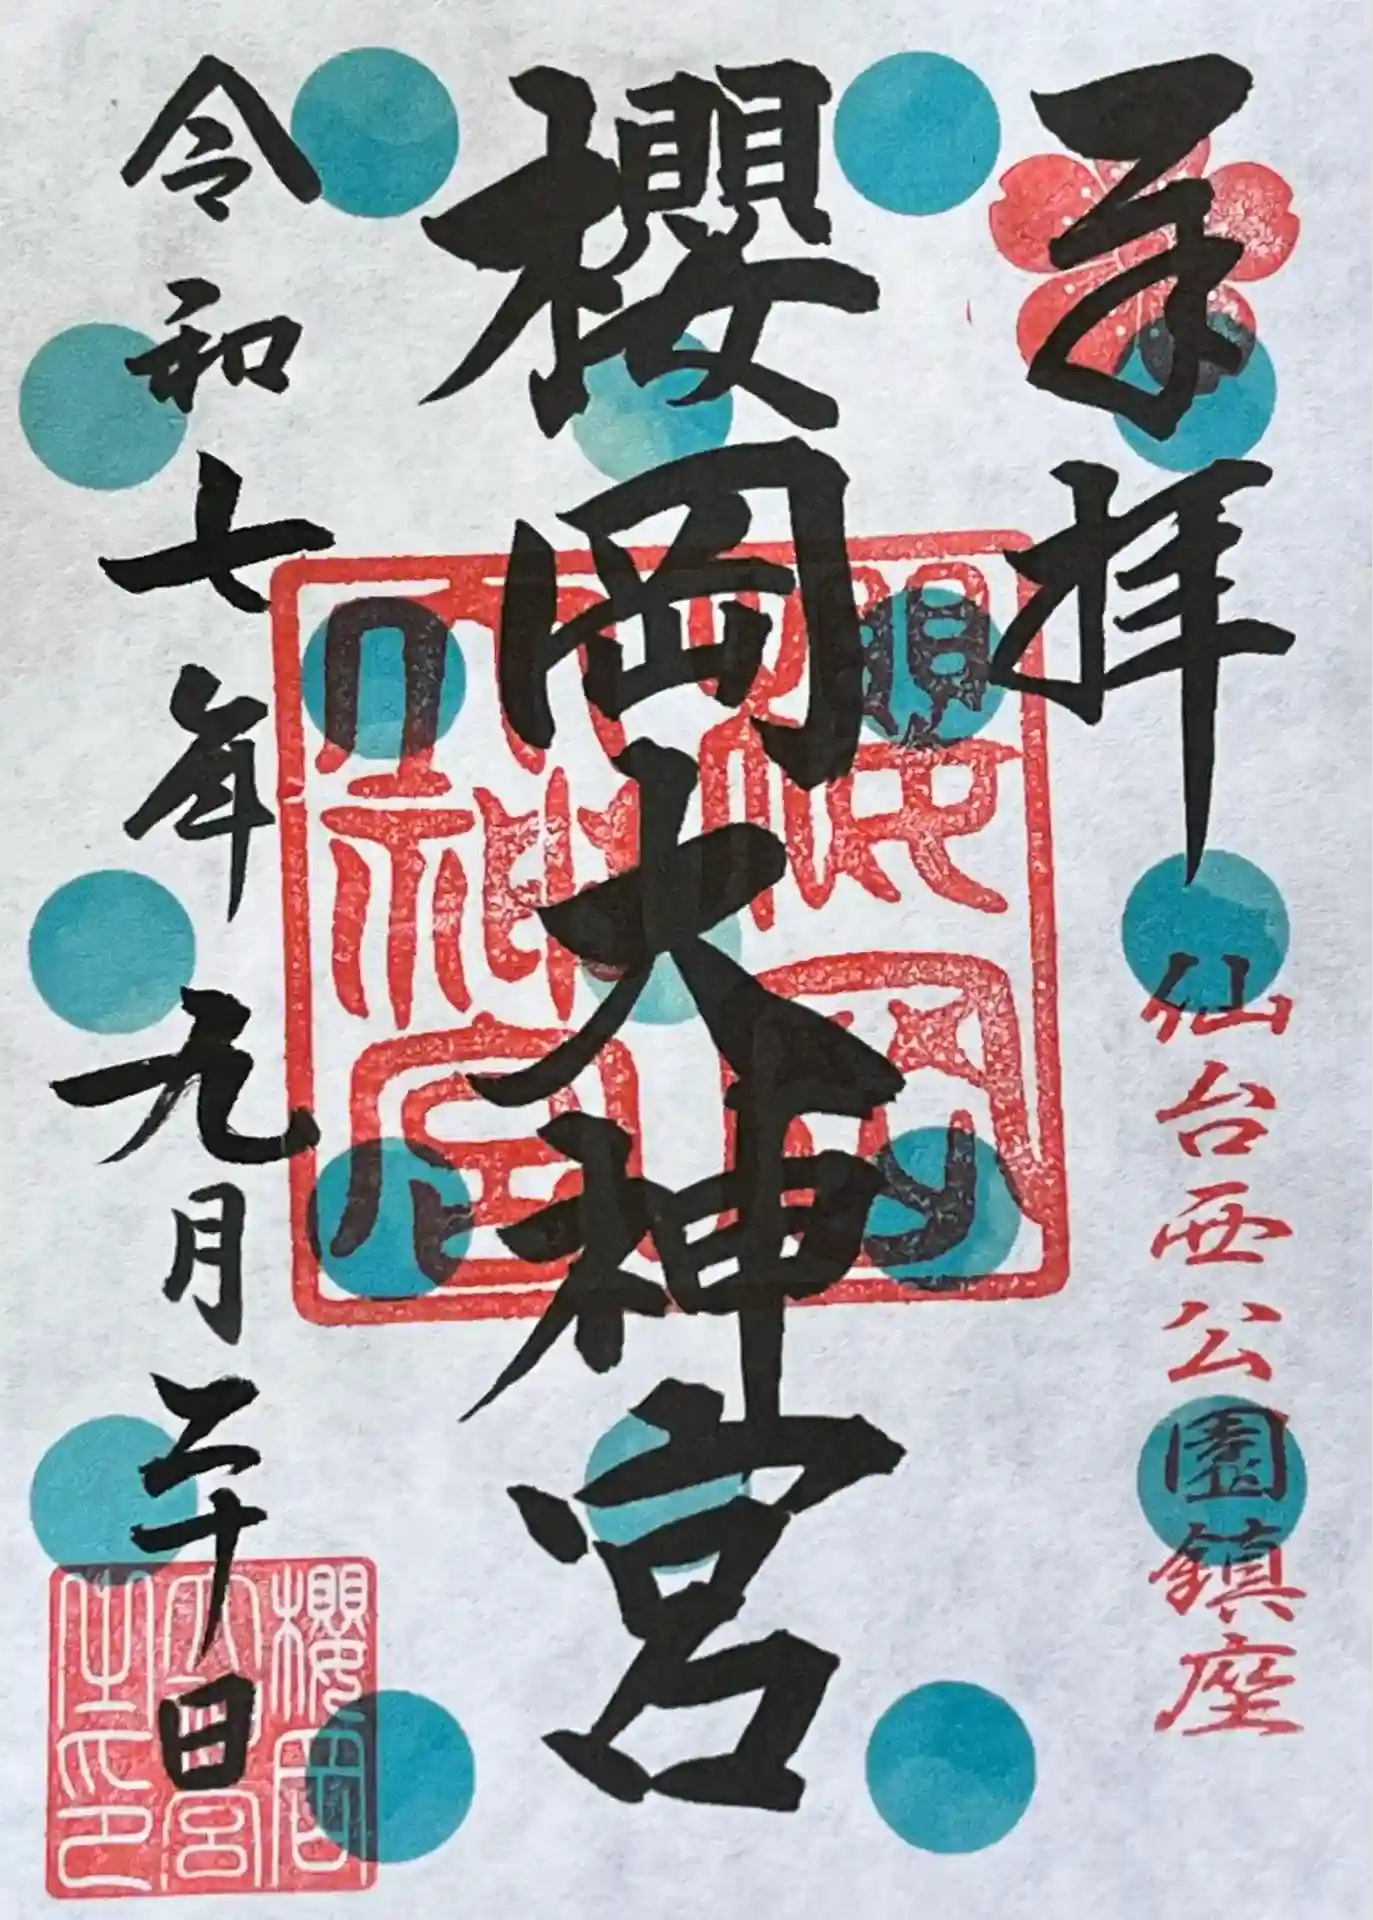 奉拝
仙台西公園鎮座
櫻岡大神宮
櫻岡大神宮
令和七年九月二十日
櫻岡
大神宮
之印